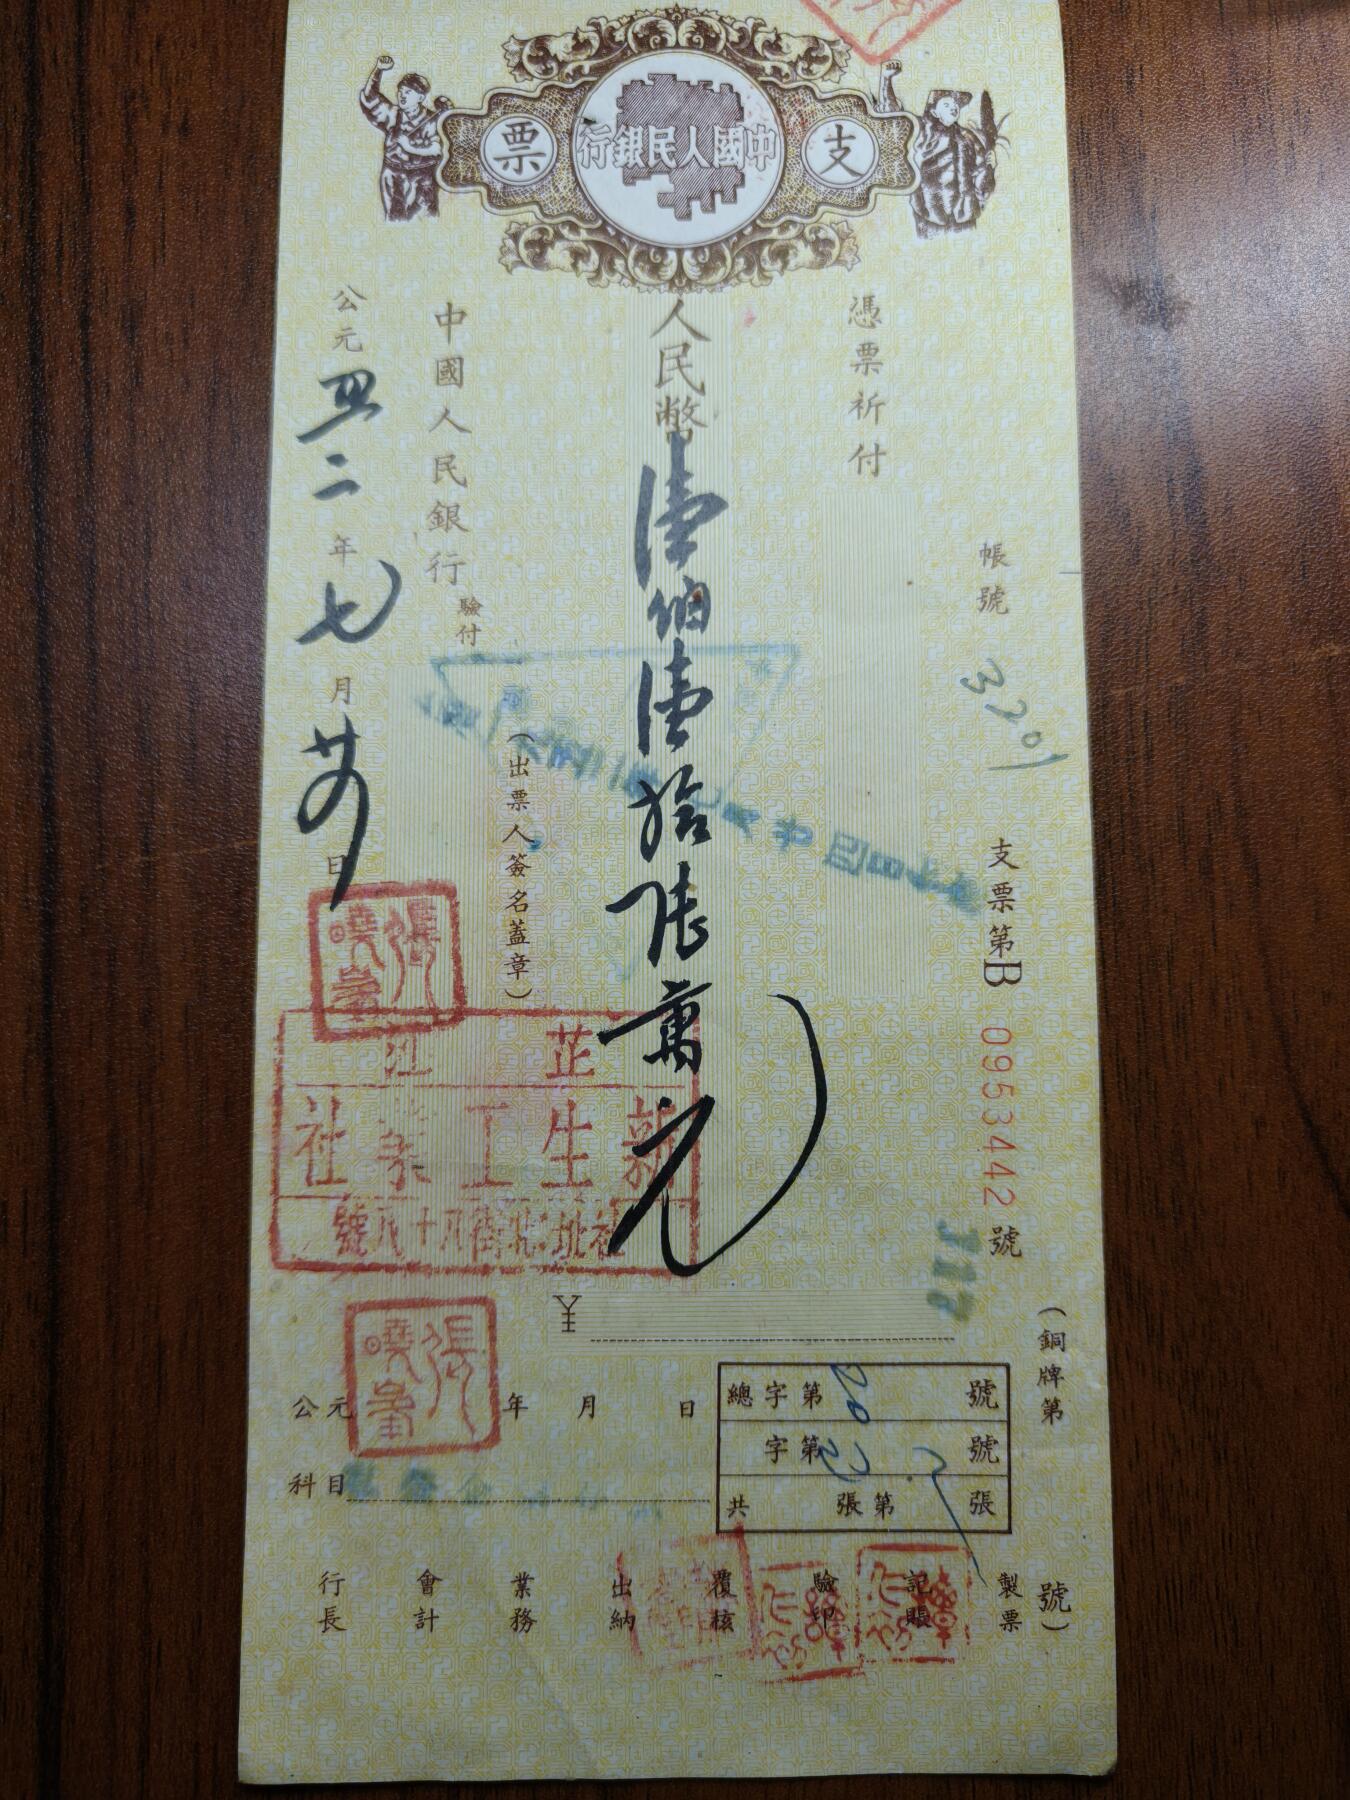 支
中國人民銀行
票
帳號 3701
支票第B 0953442 號
(銅牌第 號)
憑票祈付
人民幣 壹佰壹拾陸萬元
(出票人簽名蓋章)
中國人民銀行 驗付
公元 二年七月 日
張
芷江
新生工業社
社址:北街八十八號
¥
張
公元 年 月 日
科目
總字第 號
字第 號
共 張第 張
行長
會計
業務
出納
覆核
驗印
記賬
製票